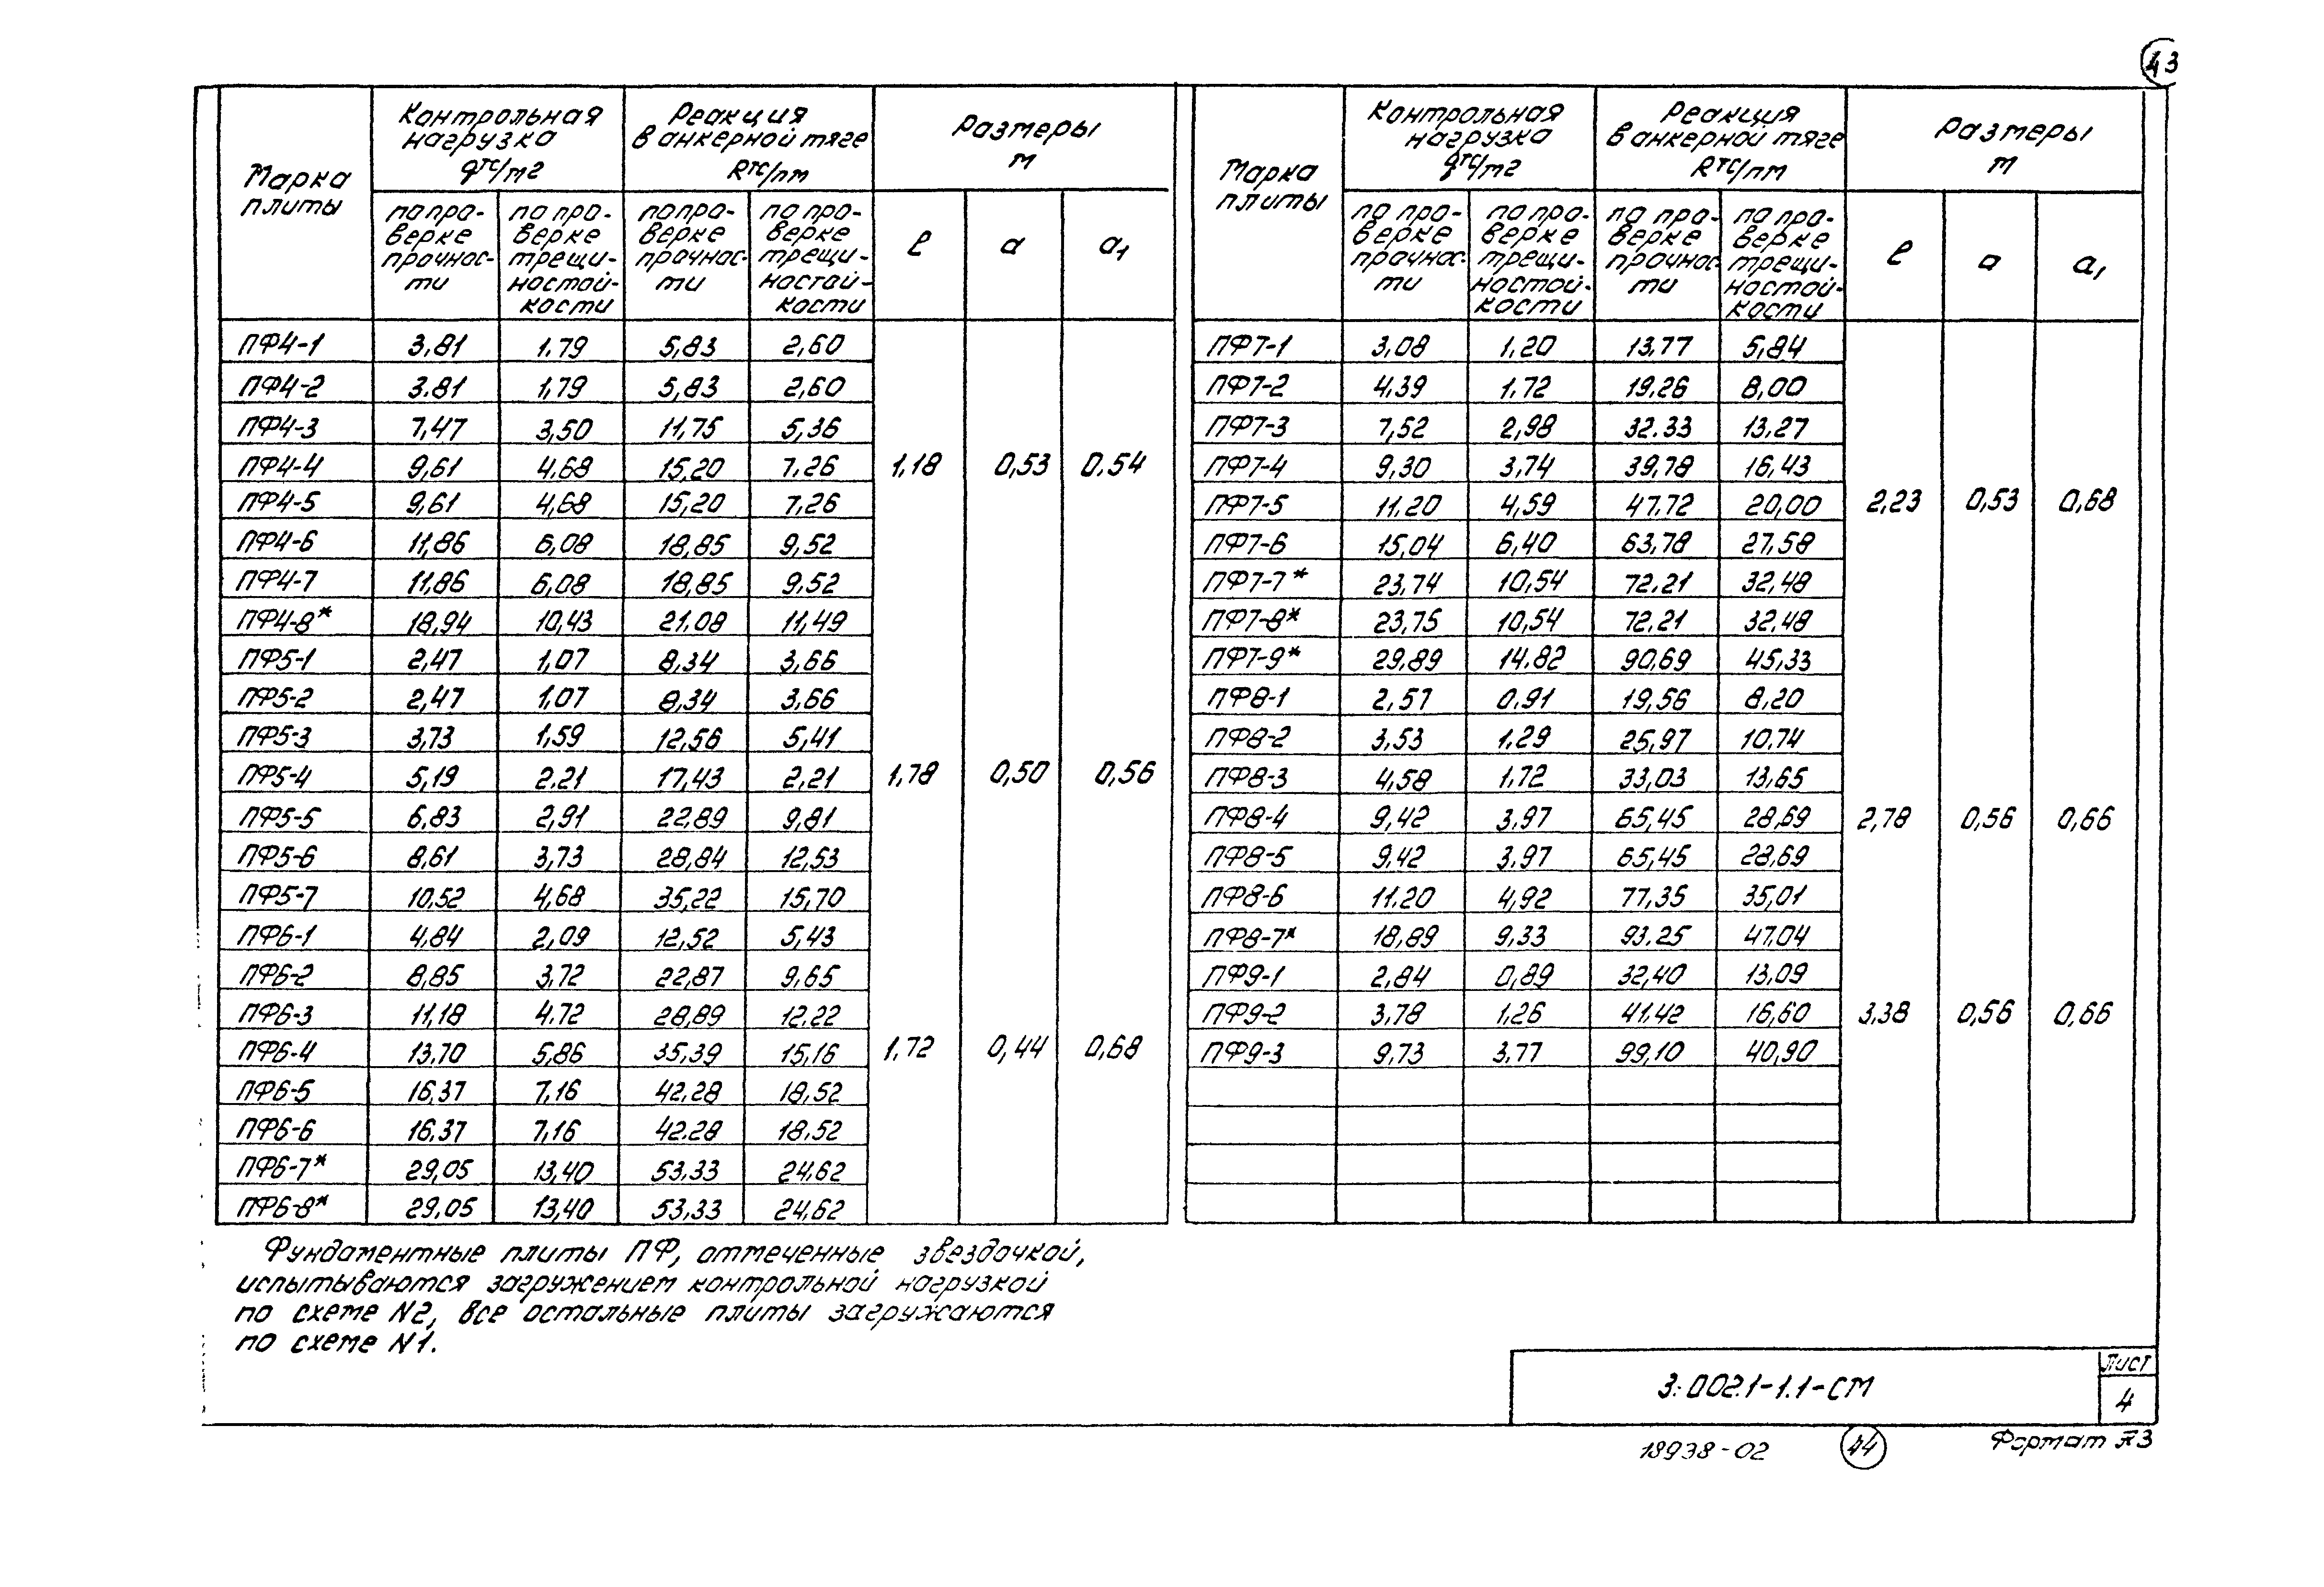 43
Марка плиты | Контрольная нагрузка qтс/м2 | Реакция в анкерной тяге Rтс/пм | Размеры м
по проверке прочнос-ти | по про-верке трещи-ностой-кости | по про-верке прочнос-ти | по про-верке трещи-ностой-кости | ℓ | а | а1
ПФ4-1 3.81 1.79 5,83 2,60
ПФ4-2 3.81 1,79 5,83 2,60
ПФ4-3 7,47 3,50 11,75 5,36
ПФ4-4 9,61 4.68 15,20 7.26 1,18 0,53 0.54
ПФ4-5 9,61 4,68 15,20 7,26
ПФ4-6 11,86 6,08 18,85 9,52
ПФ4-7 11,86 6,08 18,85 9,52
ПФ4-8* 18,94 10,43 21.08 11,49
ПФ5-1 2,47 1,07 8,34 3,66
ПФ5-2 2,47 1,07 8,34 3,66
ПФ5-3 3,73 1,59 12,56 5,41
ПФ5-4 5,19 2.21 17,43 2,21 1,78 0,50 0,56
ПФ5-5 6,83 2,91 22,89 9,81
ПФ5-6 8,61 3,73 28,84 12,53
ПФ5-7 10,52 4,68 35,22 15,70
ПФ6-1 4,84 2,09 12,52 5,43
ПФ6-2 8,85 3,72 22,87 9,65
ПФ6-3 11,18 4.72 28,89 12.22
ПФ6-4 13,70 5,86 35,39 15,16 1,72 0,44 0,68
ПФ6-5 16,37 7,16 42,28 18,52
ПФ6-6 16.37 7,16 42.28 18.52
ПФ6-7* 29,05 13,40 53,33 24,62
ПФ6-8* 29,05 13,40 53,33 24,62
Марка плиты | Контрольная нагрузка qтс/м2 | Реакция в анкерной тяге Rтс/пм | Размеры м
по про-верке прочнос-ти | по про-верке трещи-ностой-кости | по про-верке прочнос-ти | по про-верке трещи-ностой-кости | ℓ | а | а1
ПФ7-1 3,08 1,20 13,77 5,84
ПФ7-2 4,39 1,72 19,26 8,00
ПФ7-3 7,52 2,98 32.33 13,27
ПФ7-4 9,30 3,74 39,78 16,43
ПФ7-5 11,20 4,59 47,72 20,00 2,23 0,53 0,68
ПФ7-6 15,04 6,40 63,78 27,58
ПФ7-7* 23,74 10,54 72.21 32,48
ПФ7-8* 23,75 10,54 72,21 32,48
ПФ7-9* 29,89 14.82 90,69 45,33
ПФ8-1 2,57 0.91 19,56 8,20
ПФ8-2 3,53 1,29 25,97 10,74
ПФ8-3 4,58 1.72 33,03 13,65
ПФ8-4 9,42 3,97 65,45 28,69 2,78 0,56 0,66
ПФ8-5 9,42 3,97 65,45 28,69
ПФ8-6 11.20 4,92 77,35 35,01
ПФ8-7* 18,89 9,33 93.25 47.04
ПФ9-1 2,84 0,89 32,40 13,09
ПФ9-2 3,78 1,26 41.42 16,60 3,38 0,56 0,66
ПФ9-3 9,73 3,77 99,10 40,90
Фундаментные плиты ПФ, отмеченные звездочкой,
испытываются загружением контрольной нагрузкой
по схеме N2, все остальные плиты загружаются
по схеме N1.
3.002.1-1.1-СМ
Лист
4
18938-02
44
Формат А3